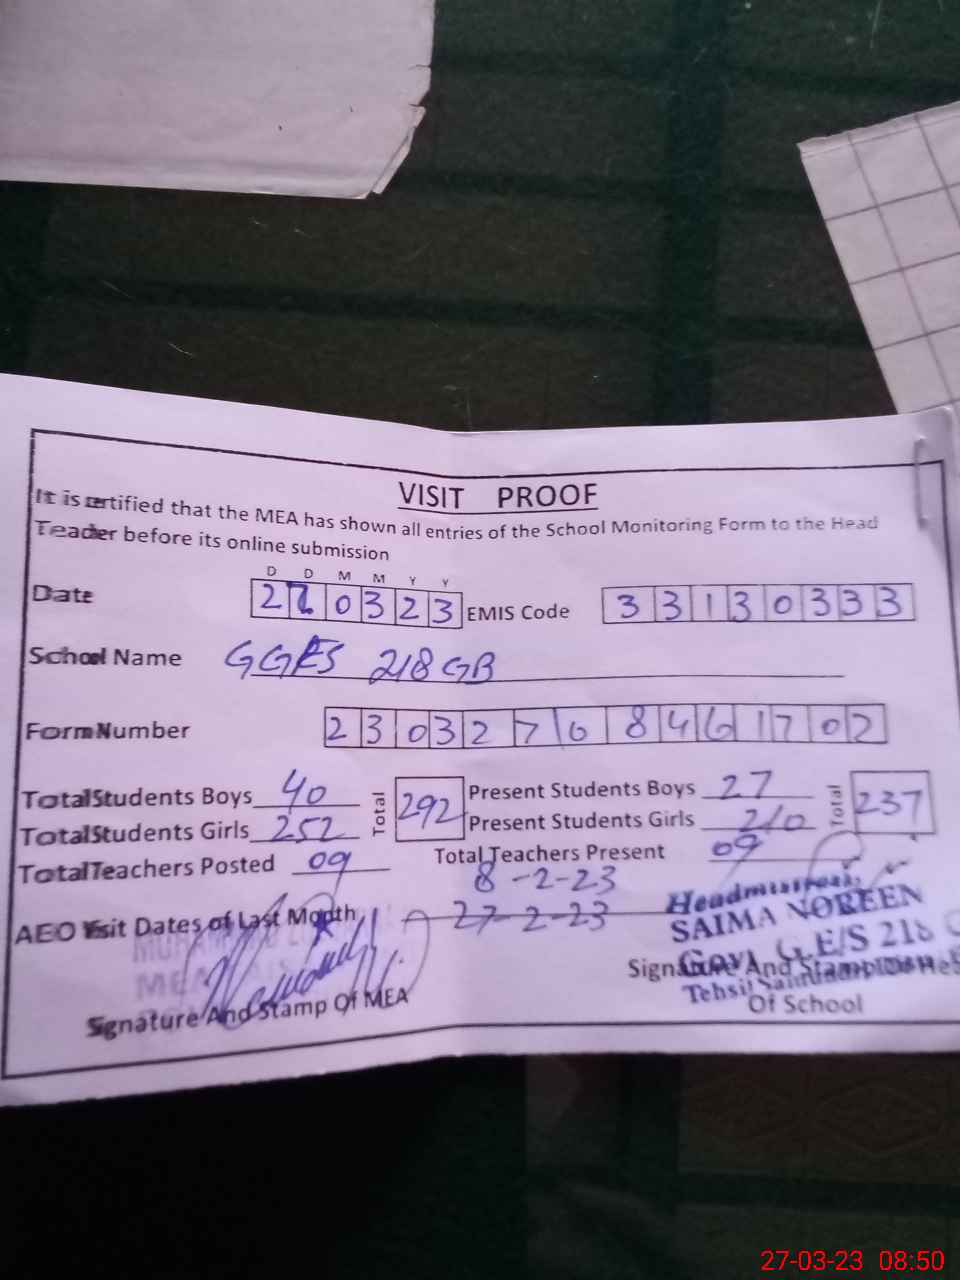 VISIT PROOF
It is certified that the MEA has shown all entries of the School Monitoring Form to the Head
Teacher before its online submission
D D M M Y Y
Date 270323 EMIS Code 33130333
School Name GGES 218 GB
Form Number 23032768461702
Total Students Boys 40 Total 292 Present Students Boys 27 Total 237
Total Students Girls 252 Present Students Girls 210
Total Teachers Posted 09 Total Teachers Present 09
8-2-23
AEO Visit Dates of Last Month 27-2-23
Headmistress,
SAIMA NOREEN
Govt G.E/S 218
Signature And Stamp Of
Tehsil
Of School
MEA
Signature And Stamp Of MEA
27-03-23 08:50